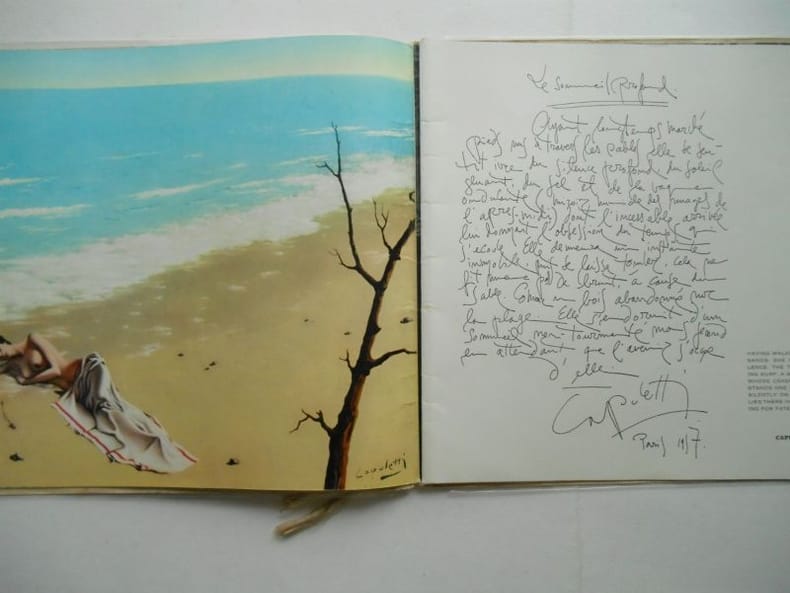 Le Sommeil Profond.
Ayant longtemps marché
pieds nus à travers les sables elle se sen-
tit ivre du silence profond, du soleil
gluant, du sel et de la vague
ondulante, miroir humide des images de
l'après-midi, dont l'incessable arrivée
lui donnait l'obsession du temps qui
s'écoule. Elle demeura un instant
immobile, puis se laissa tomber. Cela ne
fit pas de bruit, à cause du
sable. Comme un bois abandonné sur
la plage. Elle s'endormit d'un
sommeil non-tourmenté mais grand
en attendant que l'avenir s'occupe
d'elle.
Capuletti
Paris 1957.
Capuletti
HAVING
SANDS. SHE
LENCE. THE
ING SURF. A
WHOSE
STANDS ONE
SILENTLY ON
LIES THERE
ING FOR FATE